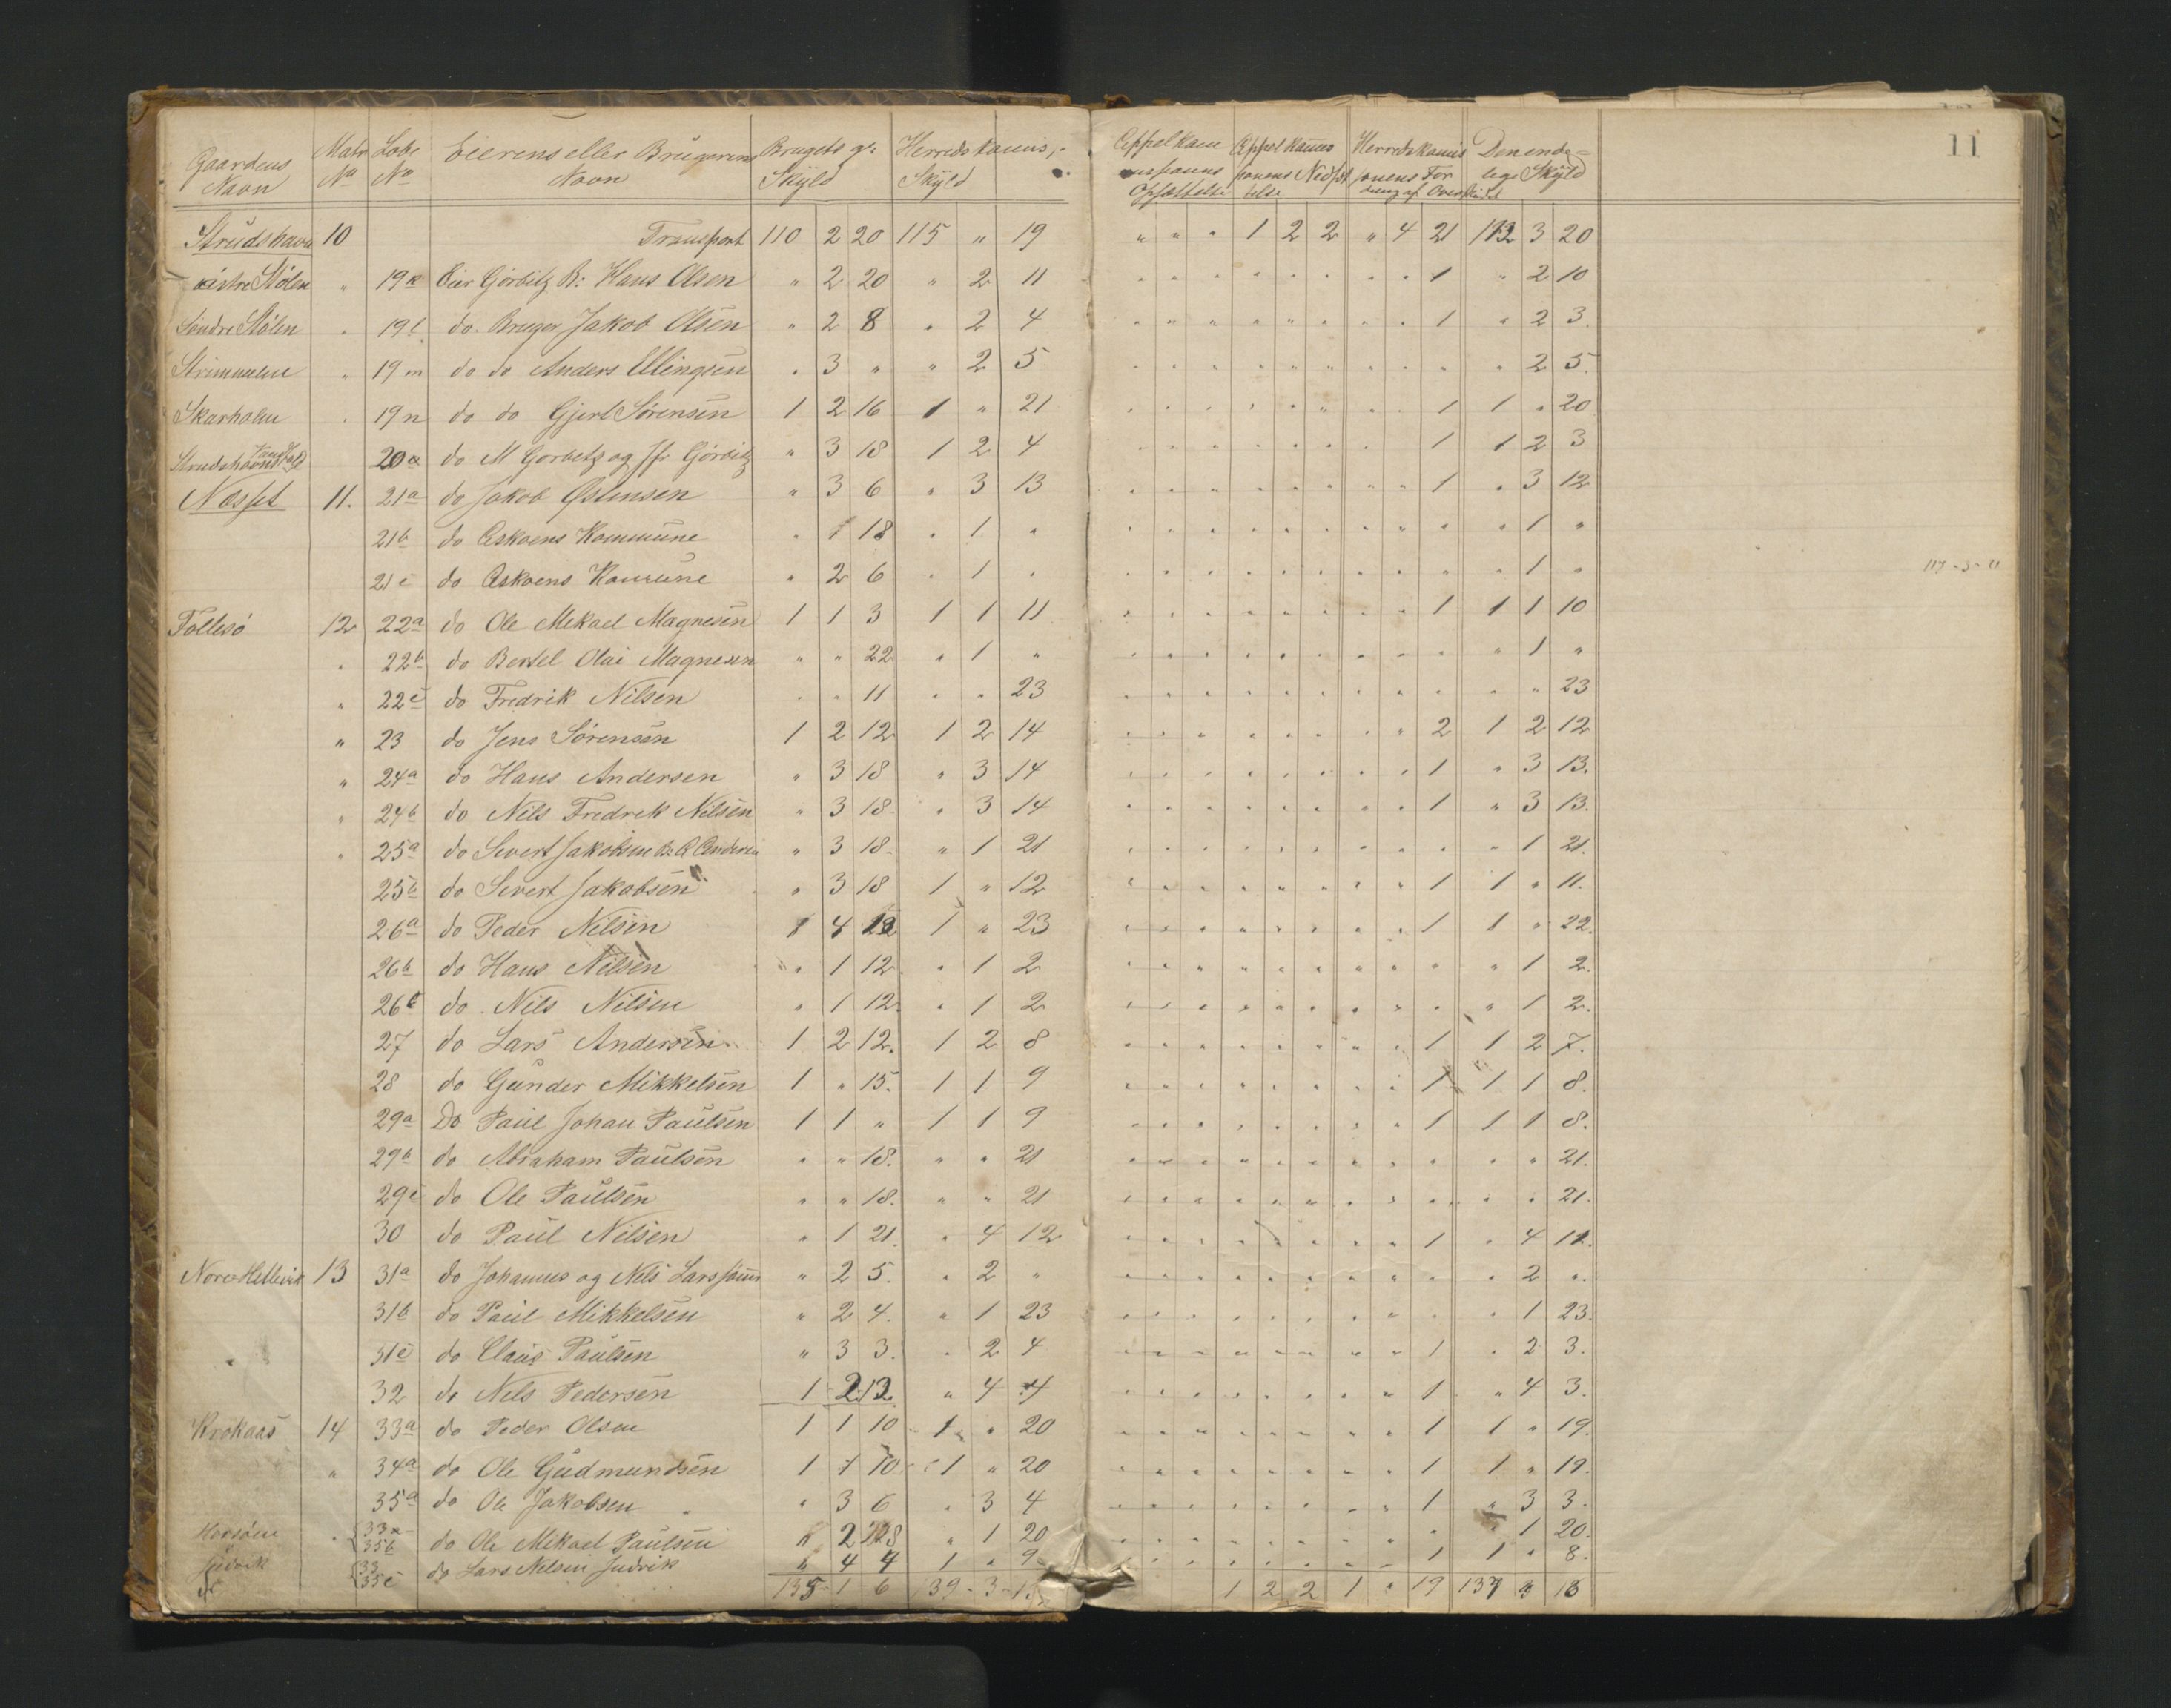 11
Gaardens Navn Matr No Løbe No Eierens eller Brugerens Navn Brugets gl: Skyld Herredskomis,- Skyld Appelkom missions Opsættelse Appelkomis sionens Nedsæt telse Herredskomis sionens For deling af Overskudet Den ende= lige Skyld
Strudshavn 10 Transport 110 2 20 115 " 19 " " " 1 2 2 " 4 21 112 3 20
østre Stølen " 19k Eier Görbitz B: Hans Olsen " 2 20 " 2 11 " " " " " " " " 1 " 2 10
Söndre Stølen " 19l do. Bruger Jakob Olsen " 2 8 " 2 4 " " " " " " " " 1 " 2 3.
Strimmelen " 19m do do Anders Ellingsen " 3 " " 2 5 " " " " " " " " " " 2 5.
Skarholm " 19n do do Gjert Sørensen 1 2 16 1 " 21 " " " " " " " " 1 1 " 20
Strudshavns Vandfald 20a do M Gorbitz og Fr Görbitz " 3 18 1 2 4 " " " " " " " " 1 1 2 3
Næsset 11. 21a do Jakob Østensen " 3 6 " 3 13 " " " " " " " " 1 " 3 12
21b do Askøens Kommune " 1 18 " 1 " " " " " " " " " " " 1 "
21c do Askøens Komune " 2 6 " 1 " " " " " " " " " " " 1 " 117-3-11
Follesö 12 22a do Ole Mekael Magnesen 1 1 3 1 1 11 " " " " " " " " 1 1 1 10
" 22b do Bertel Olai Magnesen " " 22 " 1 " " " " " " " " " " " 1 "
" 22c do Fredrik Nilsen " " 11 " " 23 " " " " " " " " " " " 23
" 23 do Jens Sörensen 1 2 12 1 2 14 " " " " " " " " 2 1 2 12
" 24a do Hans Andersen " 3 18 " 3 14 " " " " " " " " 1 " 3 13.
" 24b do Nils Fredrek Nilsen " 3 18 " 3 14 " " " " " " " " 1 " 3 13.
" 25a do Sivert Jakobsen B: A Andersen " 3 18 " 1 21 " " " " " " " " " " 1 21.
25b do Sivert Jakobsen " 3 18 1 " 12 " " " " " " " " 1 1 " 11.
26a do Peder Nilsen 1 4 12 1 " 23 " " " " " " " " 1 1 " 22.
26b do Hans Nilsen " 1 12 " 1 2 " " " " " " " " " " 1 2.
26c do Nils Nilsen " 1 12 " 1 2 " " " " " " " " " " 1 2.
27 do Lars Andersen 1 2 12. 1 2 8 " " " " " " " " 1 1 2 7.
28 do Gunder Mikkelsen 1 " 15. 1 1 9 " " " " " " " " 1 1 1 8.
29a Do Paul Johan Paulsen 1 1 " 1 1 9 " " " " " " " " 1 1 1 8.
29b do Abraham Paulsen " " 18. " " 21 " " " " " " " " " " " 21.
29c do Ole Paulsen " " 18. " " 21 " " " " " " " " " " " 21.
30 do Paul Nilsen " 1 21. " 4 12 " " " " " " " " 1 " 4 11.
Nore Hellevik 13 31a do Johannes og Nels Larssønner " 2 5. " 2 " " " " " " " " " " " 2 ".
31b do Paul Mikkelsen " 2 4. " 1 23 " " " " " " " " " " 1 23.
31c do Claus Paulsen " 3 3. " 2 4 " " " " " " " " 1 " 2 3.
32 do Nels Pedersen 1 2 12. " 4 4 " " " " " " " " 1 " 4 3.
Krokaas 14 33a do Peder Olsen 1 1 10 1 " 20 " " " " " " " " 1 1 " 19.
" 34a do Ole Gudmundsen 1 1 10 1 " 20 " " " " " " " " 1 1 " 19.
35a do Ole Jakobsen " 3 6 " 3 4 " " " " " " " " 1 " 3 3.
" 35b do Ole Mikael Paulsen " 2 " 1 20 " " " " " " " " " " 1 20.
Judvik 33 35c do Lars Nelsen Judvik " 4 4 1 " 9 " " " " " " " " 1 1 " 8.
135-1 6 139-3- 1 2 2 1 " 19 137 3 18